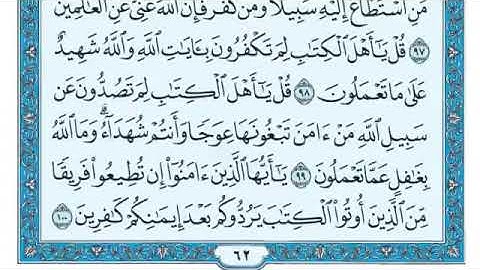 مَنِ ٱسْتَطَاعَ إِلَيْهِ سَبِيلًا وَمَن كَفَرَ فَإِنَّ ٱللَّهَ غَنِيٌّ عَنِ ٱلْعَٰلَمِينَ
٩٧ قُلْ يَٰٓأَهْلَ ٱلْكِتَٰبِ لِمَ تَكْفُرُونَ بِـَٔايَٰتِ ٱللَّهِ وَٱللَّهُ شَهِيدٌ
عَلَىٰ مَا تَعْمَلُونَ ٩٨ قُلْ يَٰٓأَهْلَ ٱلْكِتَٰبِ لِمَ تَصُدُّونَ عَن
سَبِيلِ ٱللَّهِ مَنْ ءَامَنَ تَبْغُونَهَا عِوَجًا وَأَنتُمْ شُهَدَآءُ ۗ وَمَا ٱللَّهُ
بِغَٰفِلٍ عَمَّا تَعْمَلُونَ ٩٩ يَٰٓأَيُّهَا ٱلَّذِينَ ءَامَنُوٓا۟ إِن تُطِيعُوا۟ فَرِيقًا
مِّنَ ٱلَّذِينَ أُوتُوا۟ ٱلْكِتَٰبَ يَرُدُّوكُم بَعْدَ إِيمَٰنِكُمْ كَٰفِرِينَ ١٠٠
٦٢